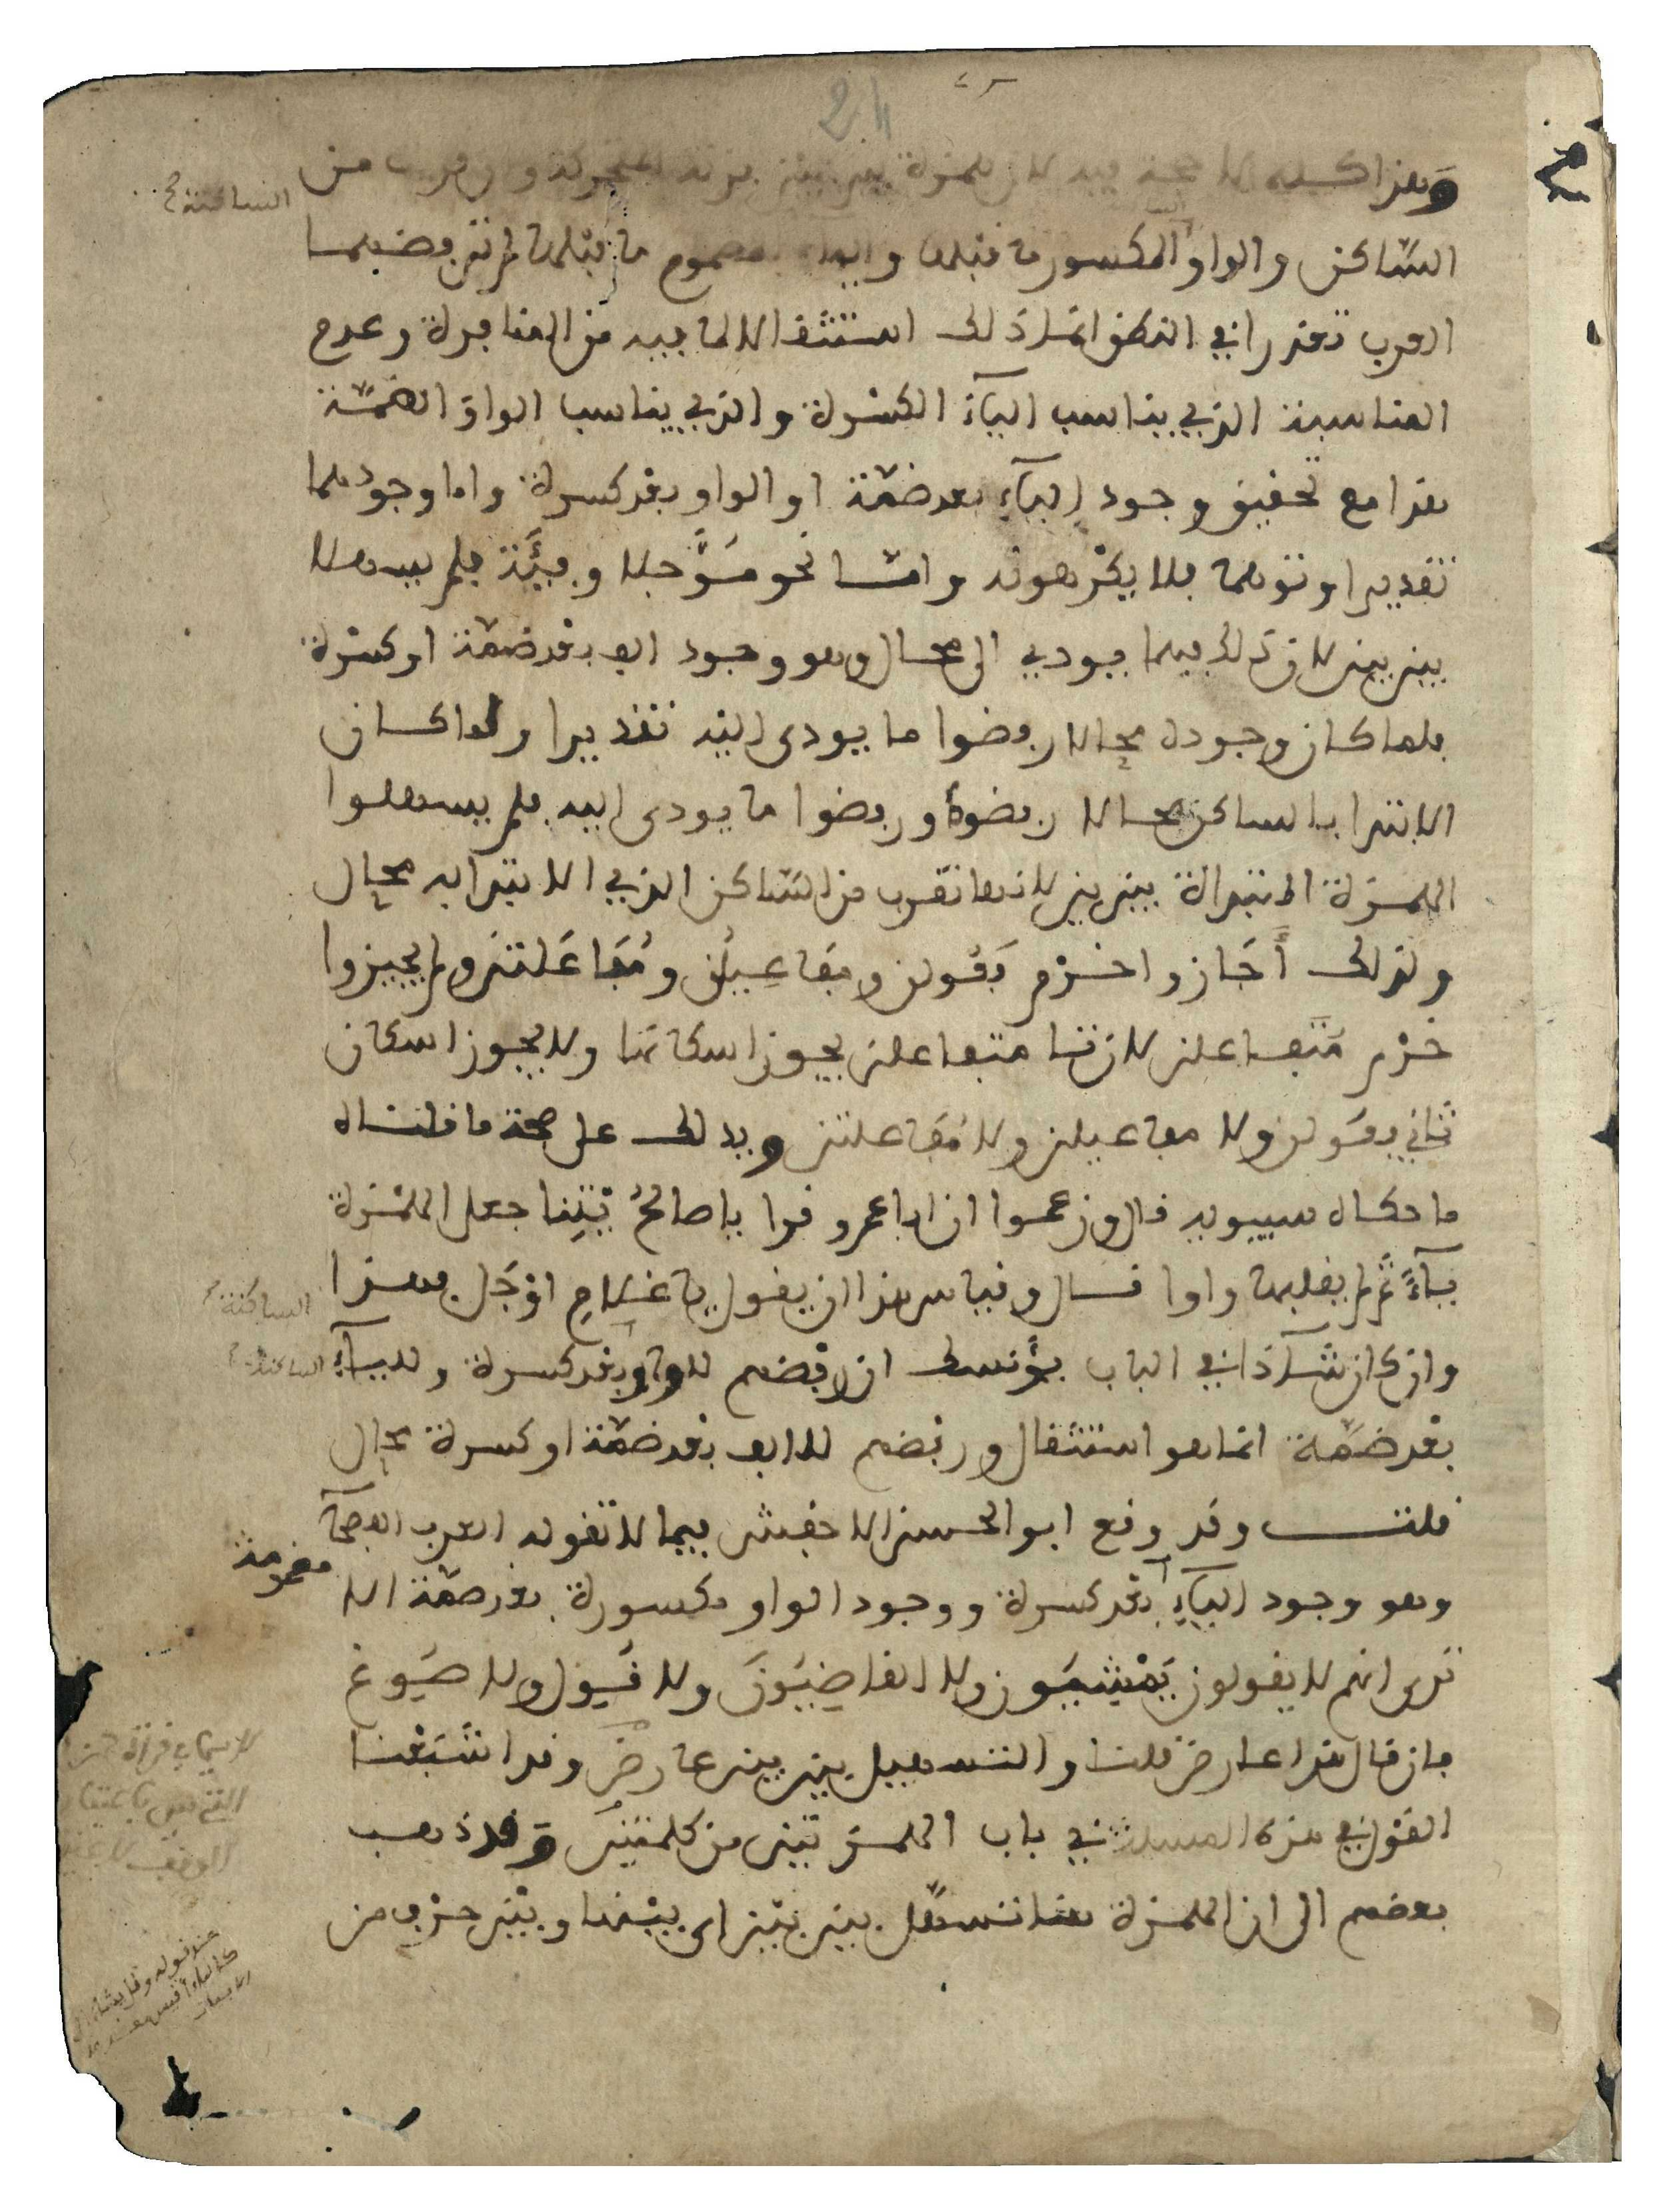 24
وهذا كله لا حجة فيه لان همزة بين بين بزنة المتحركة وان قربت من
الساكنة
الساكن والواو المكسور ما قبلها والياء المضموم ما قبلها لم ترفضهما
العرب تعذرا في النطق انما ذلك استثقالا لما فيه من المنافرة وعدم
المناسبة الذي يناسب اليآء الكسْرة والذي يناسب الواو الضمّة
هذا مع تحقيق وجود اليآء بعد ضمّة او الواو بعْد كسرة واما وجودهما
تقديرا وتوهما فلا يكْرهونه وامّا نحو مُؤَجلا وفِئَة فلم يسهلا
بين بين لان ذلك فيهما يودي الى محال وهو وجود الف بعْد ضمّة او كسْرة
فلما كان وجوده محالا رفضوا ما يودى اليْه تقديرا ولما كان
الابتدا بالساكن محالا رفضوه ورفضوا ما يودى اليه فلم يسهلوا
الهمْزة المبتداة بين بين لانها تقرب من السّاكن الذي الابتدا به محال
ولذلك أَجَازوا خرْم فَعُولن ومفاعِيلُن ومُفَاعَلتن ولم يجيزوا
خرْم مُتَفاعلن لان تا متفاعلن يجوز اسكانها ولا يجوز اسكان
ثاني فعُولن ولا مفاعيلن ولا مُفَاعلتن ويدلك على صحة ما قلناه
ما حكاه سيبويه قال وزعموا ان ابا عمرو قرا يا صالحُ يْتِنا جعل الهمْزة
يآءً ثم لم يقلبها واوا قال وقياس هذا ان يقول يا غلامِ اوْجَل فهذا
الساكنة
وان كان شآذا في الباب يؤنسك ان رفْضهم للواو بعْد كسرة ولليآء
الساكنة
بعْد ضمّة انما هو استثقال ورفْضهم للالف بعْد ضمّة او كسرة محال
قلت وقد وقع ابو الحسن الاخفش فيما لا تقوله العرب الفصحآ
وهو وجود اليآء بعْد كسرة ووجود الواو مكسورة بعد ضمّة الا
مضمومة
ترى انهم لا يقولون يَمْشِيُون ولا القاضِيُونَ ولا قُيِول ولا صُيِوغ
فان قال هذا عارض قلنا والتسهيل بين بين عارضٌ وقد اشبَعْنا
القوْل في هذه المسلة في باب الهمزتيْن من كلمتيْن وقد ذهب
بعضهم الى ان الهمزة هنا تسهّل بين بيْن اى بيْنها وبيْن حرْف من